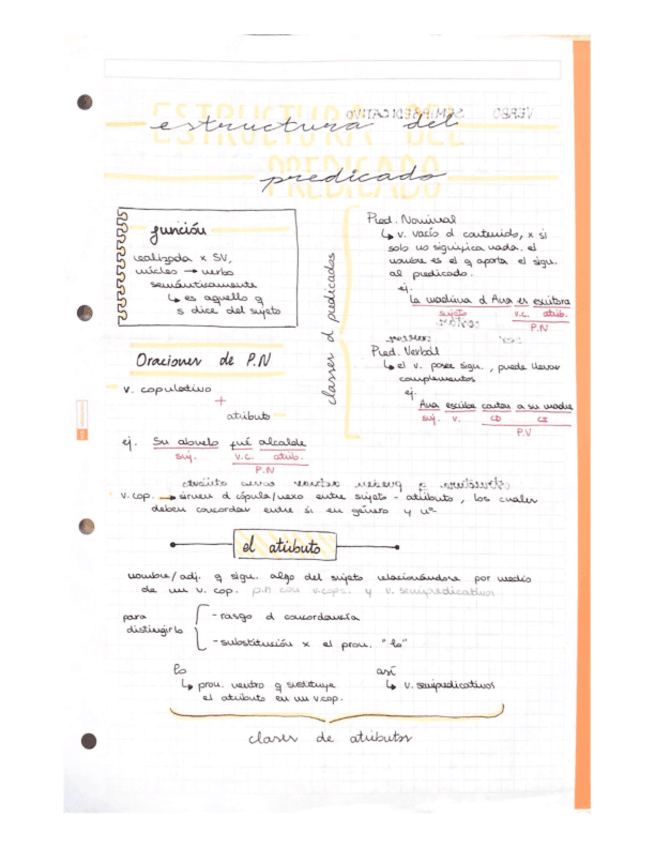 ESTRUCTURA DEL
estructura del
PREDICADO
predicado
VERBO SEMIPREDICATIVO
función
realizada x SV,
núcleo → verbo
semánticamente
↳ es aquello q
s dice del sujeto
clases d predicados
Pred. Nominal
↳ v. vacío d contenido, x sí
solo no significa nada. el
nombre es el q aporta el sign.
al predicado.
ej.
La madrina d Ana es escritora
sujeto v.c. atrib.
P.N
Pred. Verbal
↳ el v. posee sign., puede llevar
complementos
ej.
Ana escribe cartas a su madre
suj. v. CD CI
P.V
Oraciones de P.N
v. copulativo
+
atributo
ej. Su abuelo fué alcalde
suj. v.c. atrib.
P.N
v. cop. → sirven d cópula/nexo entre sujeto - atributo, los cuales
deben concordar entre si en género y nº
el atributo
nombre/adj. q sign. algo del sujeto relacionándose por medio
de un v. cop. p.n con v.cops. y v. semipredicativos
para
distinguirlo
- rasgo d concordancia
- substitución x el pron. "lo"
lo
↳ pron. neutro q sustituye
el atributo en un v.cop.
así
↳ v. semipredicativos
clases de atributos